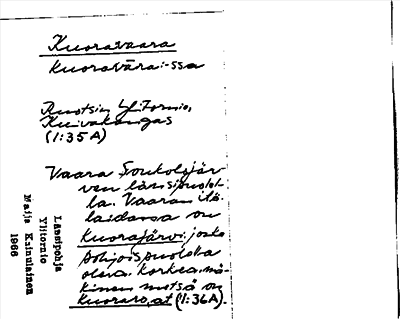 Kuoravaara
Kuoravāra: -ssa
Ruotsin Ylitornio,
Kuivakangas
(1:35A)
Vaara Soukolojär-
ven länsipuolel-
la. Vaaran itä-
laidassa on
Kuorajärvi: jonka
pohjoispuolella
oleva korkea mä-
kinen metsä on
Kuoraro, at (1:36A).
Länsipohja
Ylitornio
Maija Kainulainen
1966